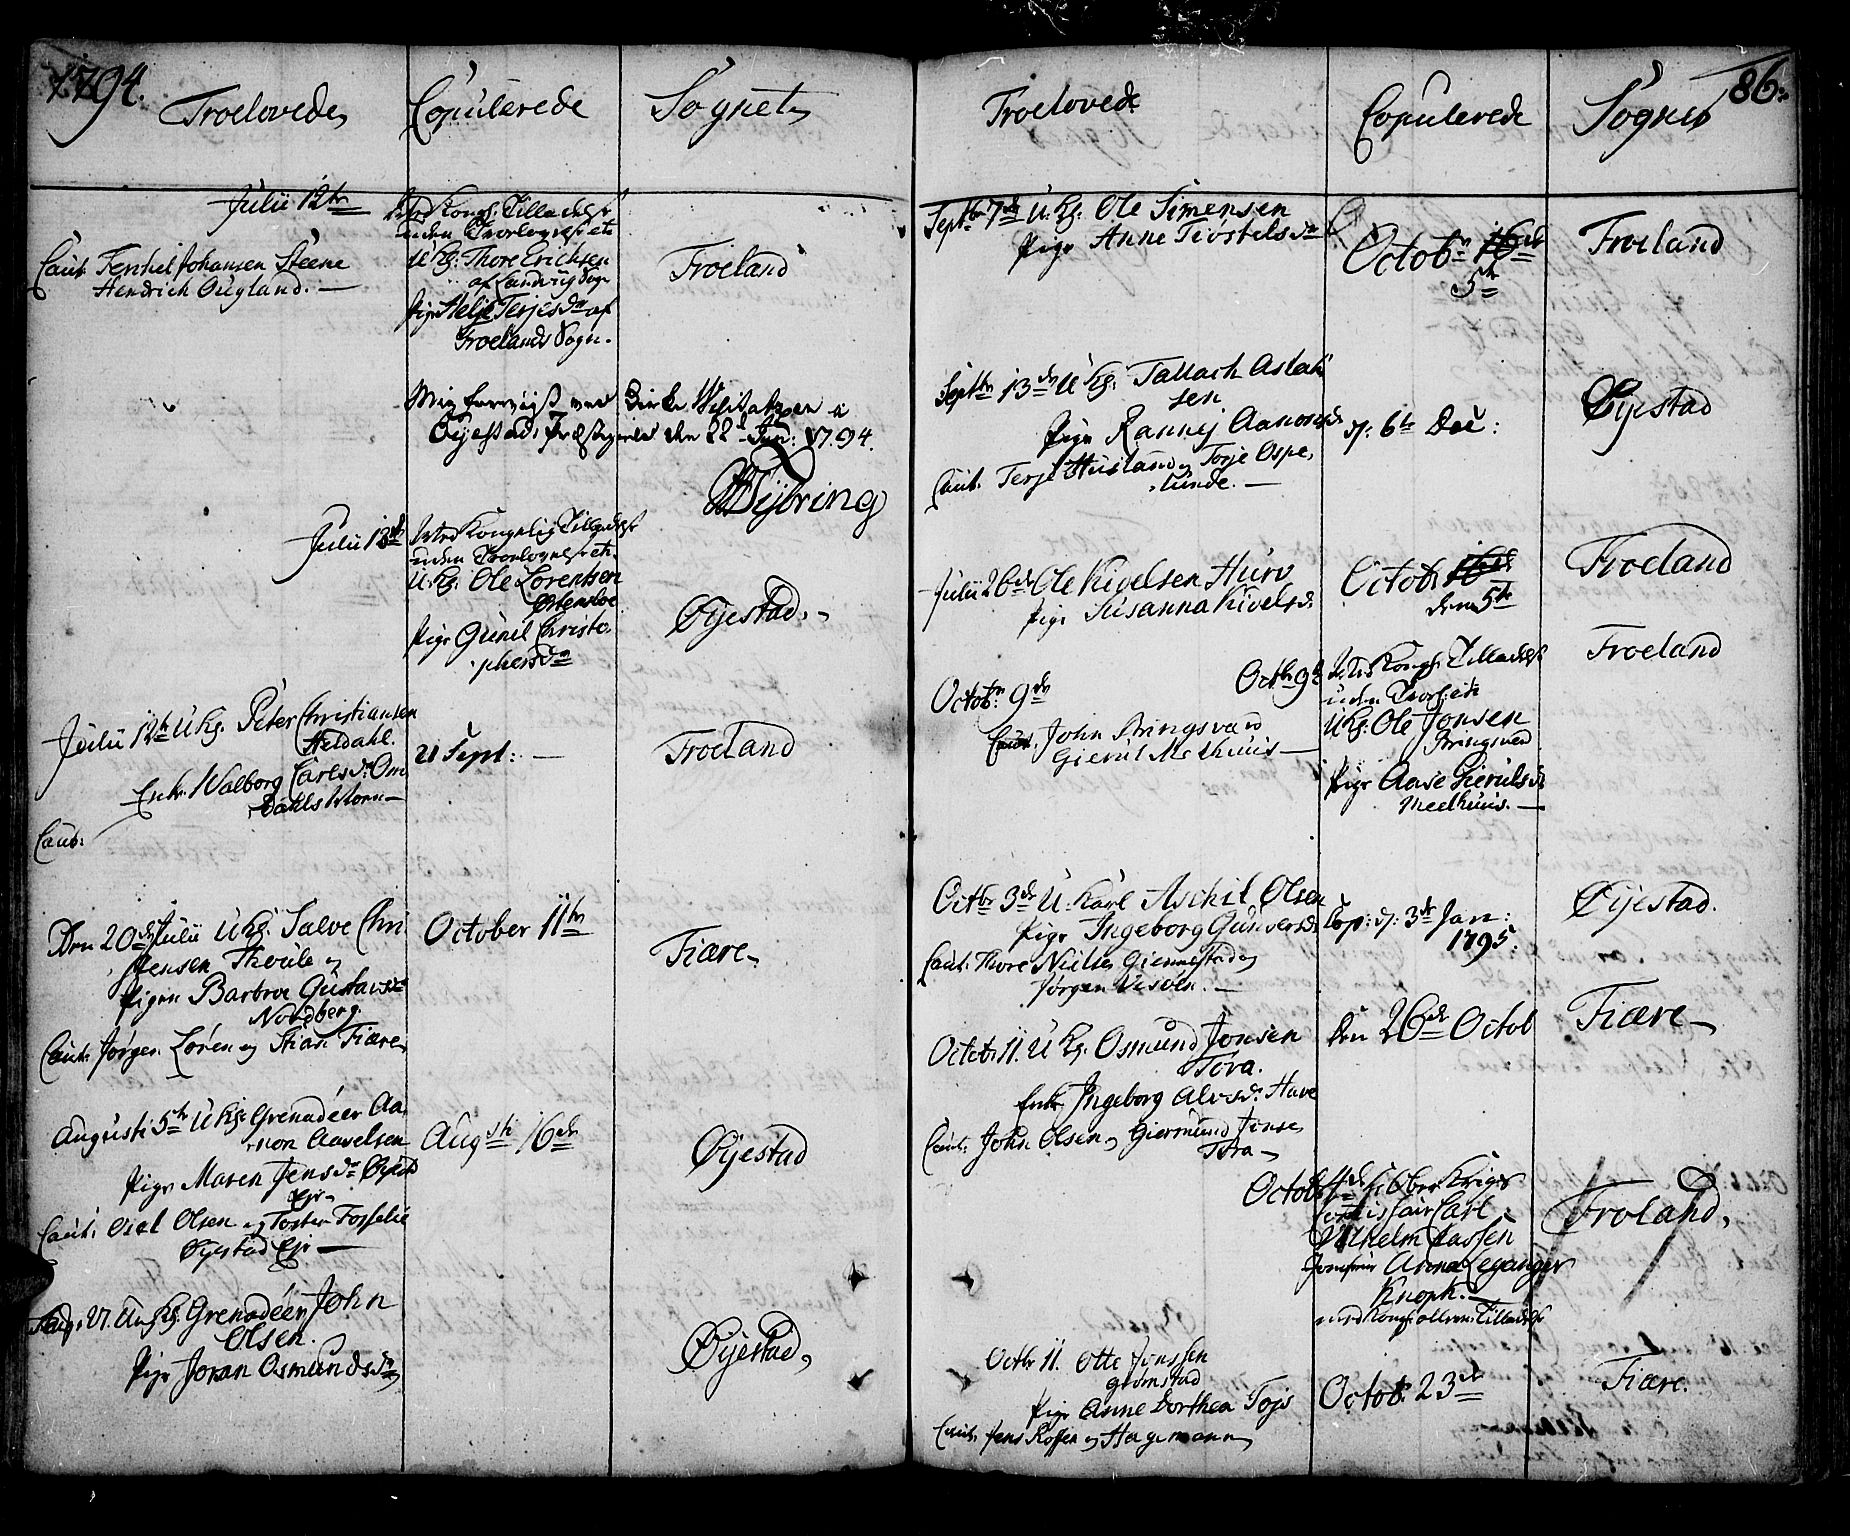 1794.
Troelovede, Copulerede Sognet,
Julii 12te
Caut. Tenkiel Johansen Steene
Hendrich Ougland. —
Med Kongl: Tilladelse
uden Troelovelse etc
U Kg: Thore Erichsen
af Landvig Sogn
Pige Helje Terjesdr af
Froelands Sogn.
Froeland
Mig foreviist ved Kirke Visitatzen i
Øyestads Præstegield den 22 Jun: 1794.
Julii 13de
Med Kongelig Tilladelse
uden Troelovelse etc.
U Kg. Ole Lorentsen
Østensboe
Pige Gunil Christo-
phersdr
Øyestad.
Julii 12te U Kg. Peter Christiansen
Heldahl.
Enke Walborg Carlsdr Om
Dahls
Caut:
21 Sept: —
Froeland
Den 20de Julii U Kg. Salve Chri
stensen Throile og
Pigen Barbroe Gustavsdr
Nordberg.
Caut: Jørgen Løren og Stian Fiære,
October 11te
Fiære
Augusti 5te U Kg: Grenadeer Aa-
non Aavelsen
Pige Maren Jensdr Øyest
Eje
Caut: Oiel Olsen og Toster Fosselie
Øyestad Eje —
Augsti 16de
Øyestad
Aug. 27. U Kg. Grenadeer John
Olsen.
Pige Joran Osmundsdr
Øyestad,
86.
Troelovede Copulerede Sognet
Septbr 7de U. Kg. Ole Simensen
Pige Anne Tiostelsdr
Octobr 16de
5te
Froeland
Septbr 13de U Kg. Tallach Aslak
sen
Pige Rannej Aanonsdr
Caut. Terje Husland og Torje Ospe,
lunde. —
d: 6te Dec:
Øyestad
Julii 26de Ole Kivelsen Hurv
Pige Susanna Kivelsdr
Octob: 16de
den 5te
Froeland
Octobr: 9de
Caut. John Bringsvard
Gierul Melhuus —
Octbr 9de
Med Kongl: Tilladelse
uden
U Kg: Ole Jonsen
Bringsvard
Pige Aase Gierulsdr
Meelhuus. —
Froeland
Octbr 3de U. Karl Aschil Olsen
Pige Ingeborg Gunversdr
Caut: Thore Nielse Giennestad og
Jørgen Vesøen. —
Cop: d: 3de Jan:
1795:
Øyestad.
Octob: 11. U Kg. Osmund Jonsen
Tora.
Enke Ingeborg Alvsdr Have
Caut: John Olsen og Giermund Jonse
Tora —
den 26de Octob
Fiære
Octob
Hr. Ober Krigs
Carl
Vilhelm Classen
Jomfrue Anna Leganger
Knoph. —
med Kongl: allern: Tilladelse
Froland,
Octbr 11. Otte Jonssen
Grimstad
Pige Anne Dorthea Tojs
Caut: Jens Roffen og Hagemann
Octob: 23de
Fiære.